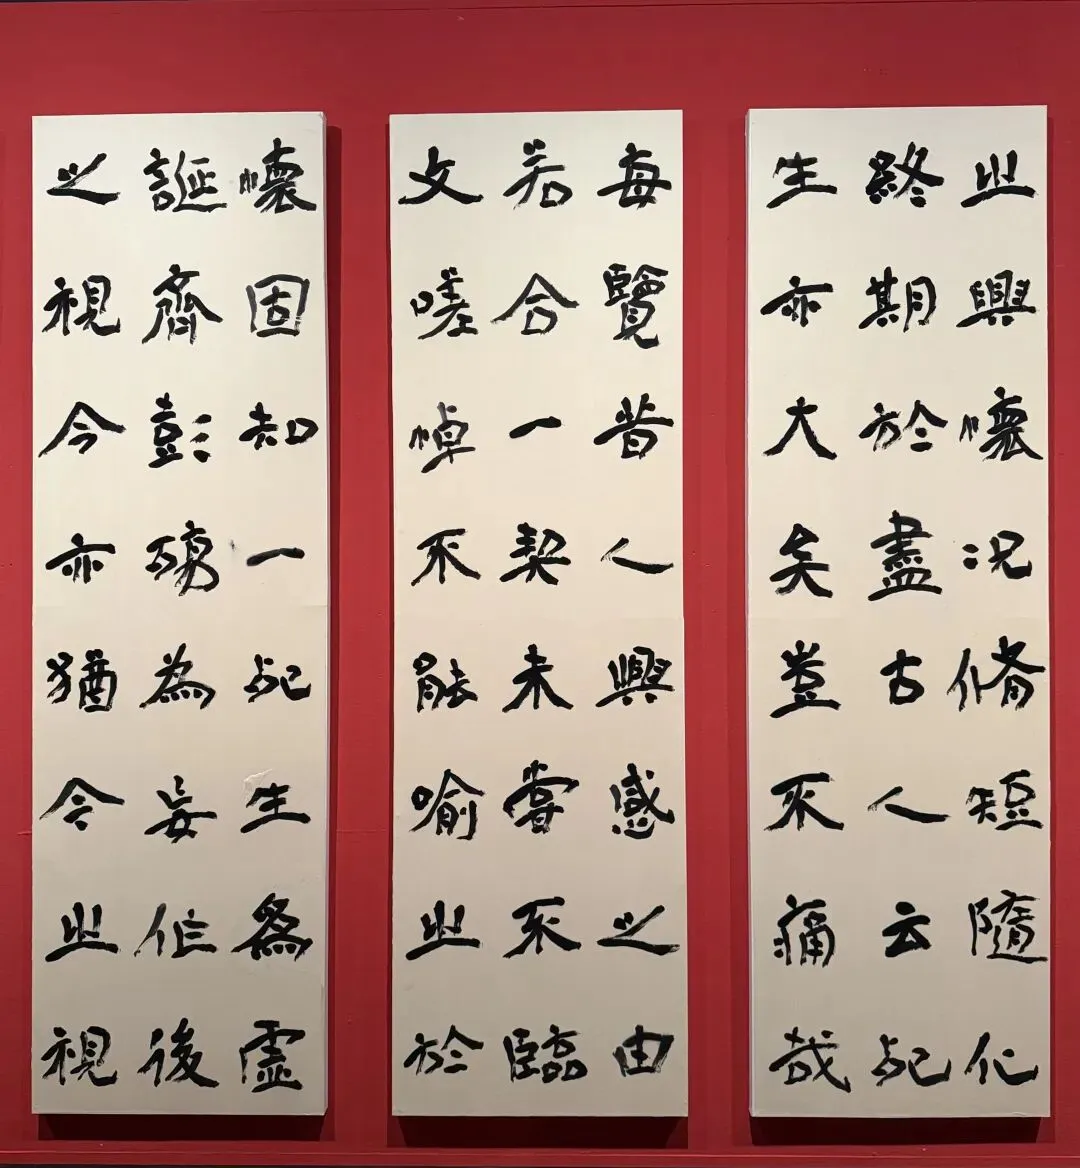 之興懷況脩短隨化
終期於盡古人云死
生亦大矣豈不痛哉
每覽昔人興感之由
若合一契未嘗不臨
文嗟悼不能喻之於
懷固知一死生為虛
誕齊彭殤為妄作後
之視今亦猶今之視